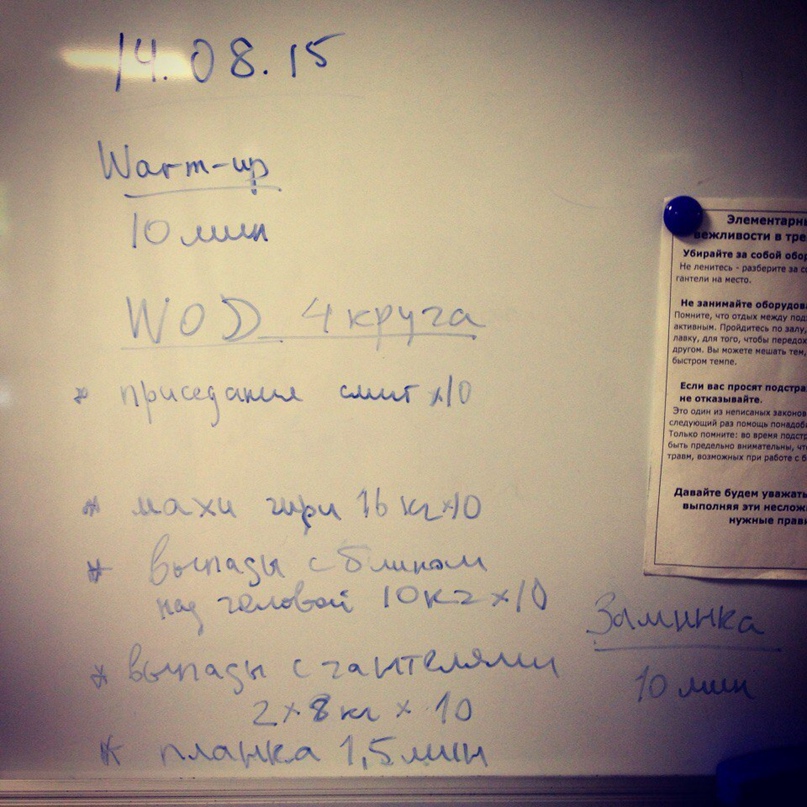 14.08.15
Warm-up
10 мин
WOD 4 круга
* приседания смит х10
* махи гири 16 кг х10
* выпады с блином
над головой 10кг х 10
* выпады с гантелями
2 х 8 кг х 10
* планка 1,5 мин
Заминка
10 мин
Элементарн
вежливости в тре
Убирайте за собой обор
Не ленитесь - разберите за с
гантели на место.
Не занимайте оборудов
Помните, что отдых между под
активным. Пройдитесь по залу,
лавку, для того, чтобы передох
другом. Вы можете мешать тем,
быстром темпе.
Если вас просят подстра
не отказывайте.
Это один из неписаных законов
следующий раз помощь понадоб
Только помните: во время подстр
быть предельно внимательны, чт
травм, возможных при работе с б
Давайте будем уважать
выполняя эти неслож
нужные прави